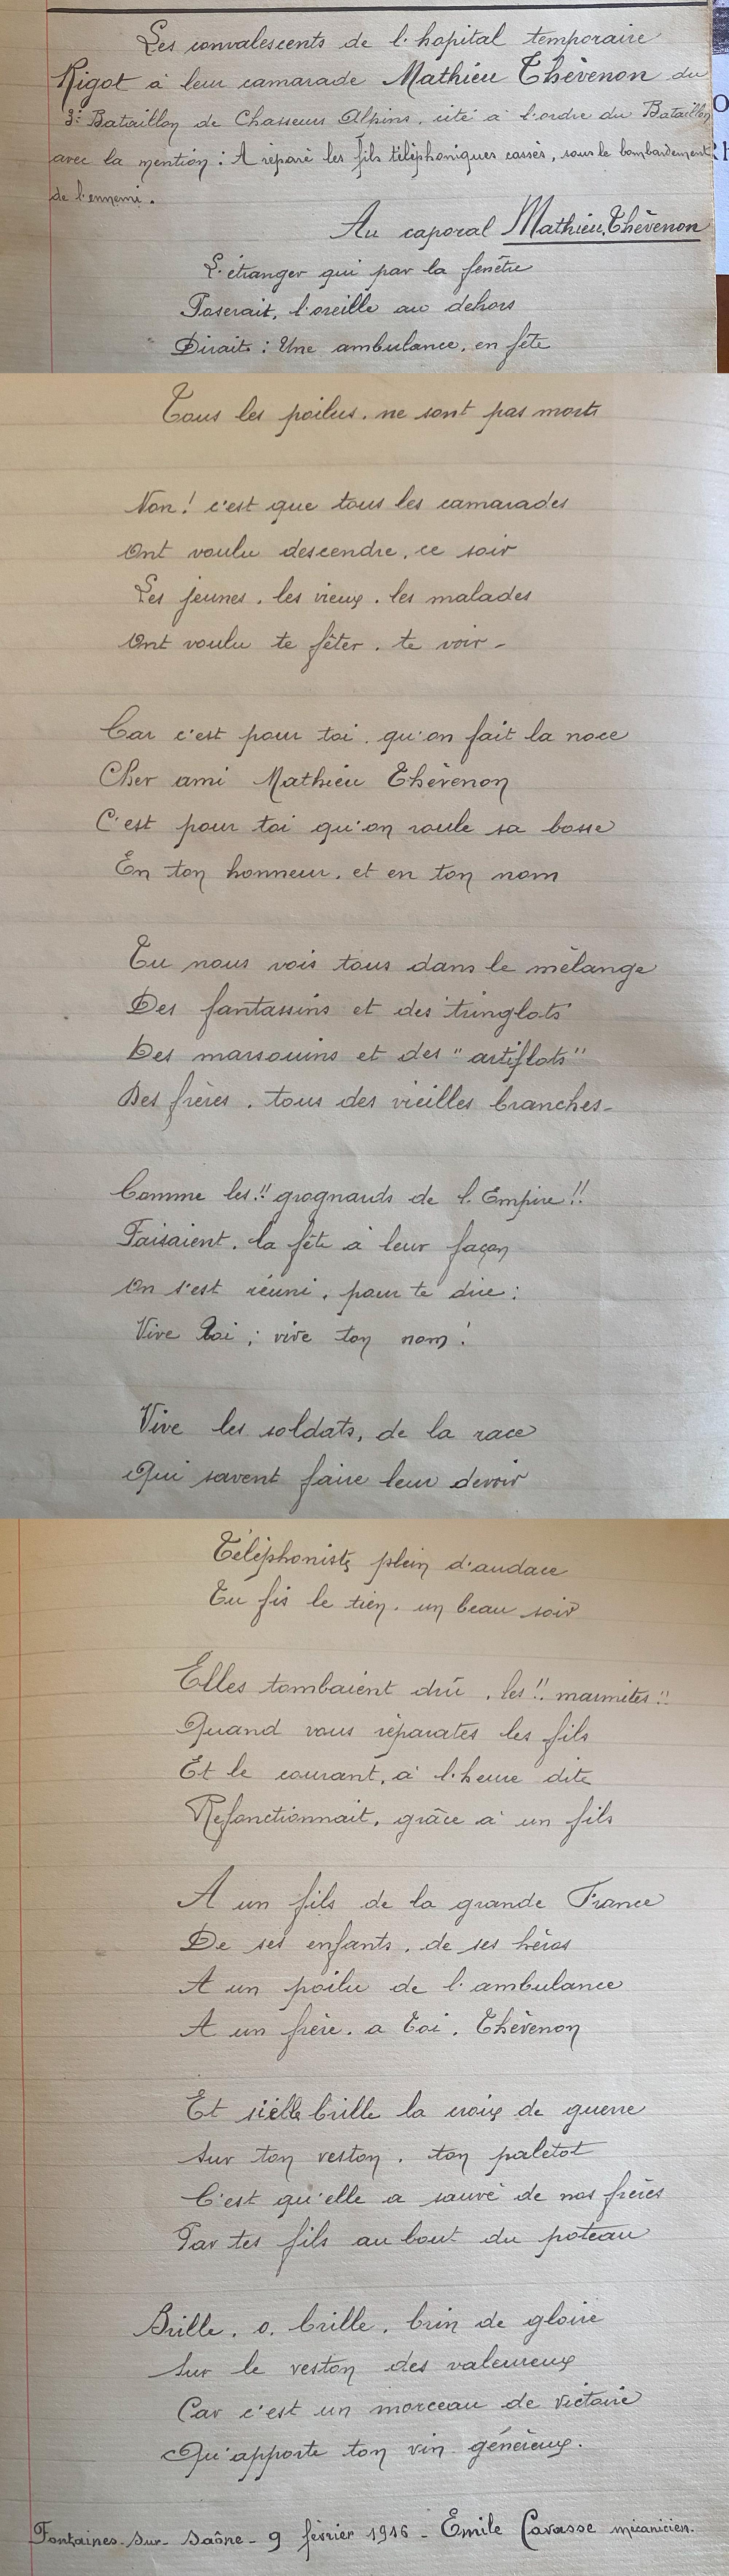 Les convalescents de l'hopital temporaire
Rigot à leur camarade Mathieu Thévenon du
3e Bataillon de Chasseurs Alpins, cité à l'ordre du Bataillon
avec la mention : A réparé les fils téléphoniques cassés, sous le bombardement
de l'ennemi.
Au caporal Mathieu Thévenon
L'étranger qui par la fenêtre
Poserait, l'oreille au dehors
Dirait : Une ambulance, en fête
Tous les poilus, ne sont pas morts
Non ! c'est que tous les camarades
Ont voulu descendre, ce soir
Les jeunes, les vieux, les malades
Ont voulu te fêter, te voir -
Car c'est pour toi, qu'on fait la noce
Cher ami Mathieu Thévenon
C'est pour toi qu'on roule sa bosse
En ton honneur, et en ton nom
Tu nous vois tous dans le mélange
Des fantassins et des "tringlots"
Des marsouins et des "artiflots"
Des frères, tous des vieilles branches -
Comme les !! grognards de l'Empire !!
Faisaient, la fête à leur façon
On s'est réuni, pour te dire :
Vive Toi ; vive ton nom !
Vive les soldats, de la race
Qui savent faire leur devoir
Téléphoniste plein d'audace
Tu fis le tien, un beau soir
Elles tombaient drû, les !! marmites !!
Quand vous réparates les fils
Et le courant, à l'heure dite
Refonctionnait, grâce à un fils
A un fils de la grande France
De ses enfants, de ses héros
A un poilu de l'ambulance
A un frère, a Toi, Thévenon
Et si elle brille la croix de guerre
Sur ton veston, ton paletot
C'est qu'elle a sauvé de nos frères
Par tes fils au bout du poteau
Brille, o, brille, brin de gloire
Sur le veston des valeureux
Car c'est un morceau de victoire
Qu'apporte ton vin généreux.
Fontaines-Sur-Saône - 9 février 1916 - Emile Cavasse mécanicien.